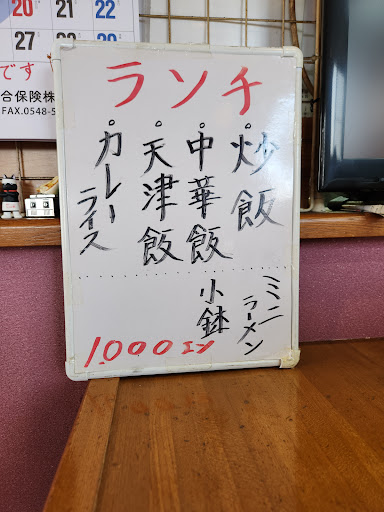 20 21 22
27 28 29
です
合保険株
FAX.0548-5
ランチ
。炒飯
。中華飯
。天津飯
。カレーライス
ミニラーメン
小鉢
1.000エン